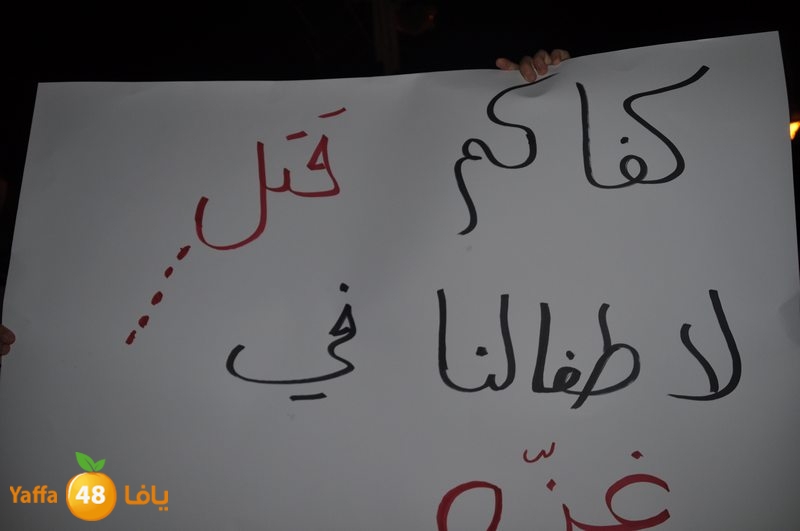 كفاكم قتل
لاطفالنا في
غزّه
Yaffa 48 يافا